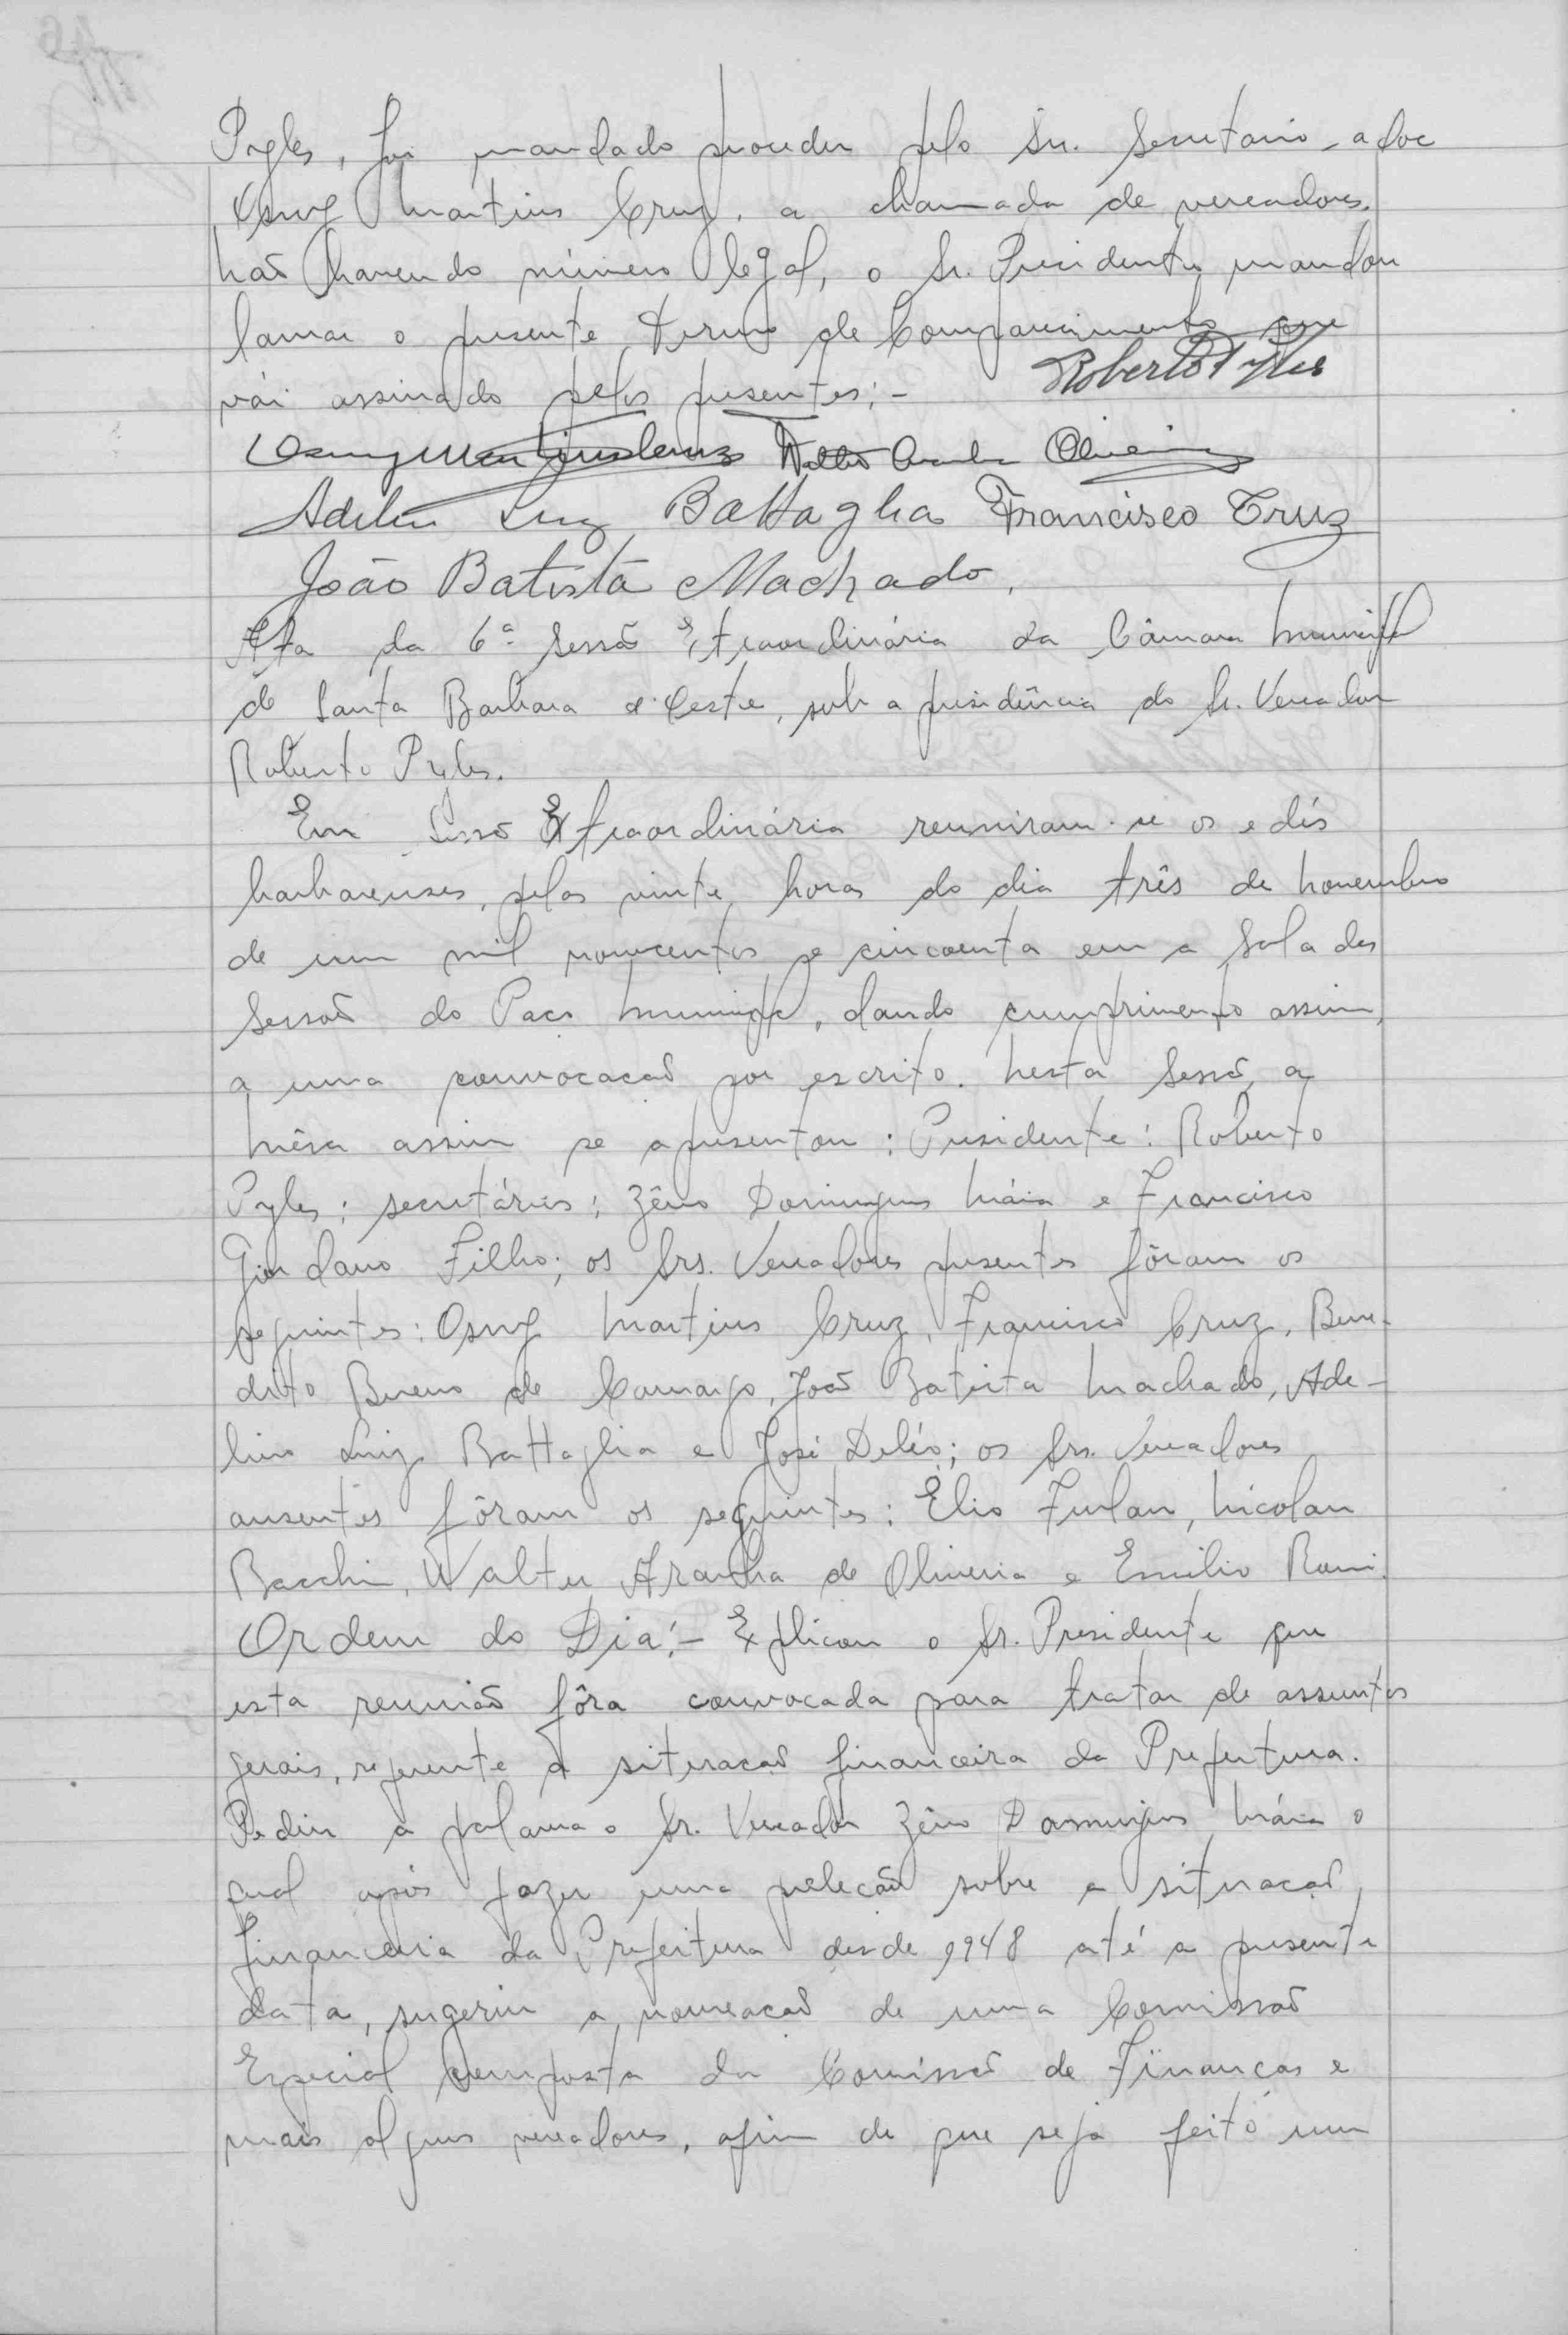 Pyles, foi mandado proceder pelo Sr. Secretario, adoc
Osny Martins Cruz, a chamada de vereadores.
Não havendo número legal, o Sr. Presidente mandou
lavrar o presente Termo de Comparecimento que
vái assinado pelos presentes:-
Roberto Pyles
Osny Martins Cruz Walter Aranha Oliveira
Adelino Luiz Battaglia Francisco Cruz
João Batista Machado.
Ata da 6ª Sessão Extraordinária da Câmara Municipal
de Santa Barbara d'Oeste, sob a presidência do Sr. Vereador
Roberto Pyles.
Em Sessão Extraordinária reuniram-se os edís
barbarenses, pelas vinte horas do dia três de Novembro
de um mil novecentos e cincoenta em a Sala das
Sessão do Paço Municipal, dando cumprimento assim,
a uma convocação por escrito. Nesta Sessão, a
Mêsa assim se apresentou: Presidente: Roberto
Pyles; secretários: Zêno Domingues Máia e Francisco
Giordano Filho; os Srs. Vereadores presentes fôram os
seguintes: Osny Martins Cruz, Francisco Cruz, Bene-
dito Bueno de Camargo, João Batista Machado, Ade-
lino Luiz Battaglia e José Deléo; os Srs. Vereadores
ausentes fôram os seguintes: Élio Furlan, Nicolau
Bacchin, Walter Aranha de Oliveira e Emilio Romi.
Ordem do Dia:- Explicou o Sr. Presidente que
esta reunião fôra convocada para tratar de assuntos
gerais, referente á situação financeira da Prefeitura.
Pediu a palavra o Sr. Vereador Zêno Domingues Máia o
qual após fazer uma preleção sobre a situação
financeira da Prefeitura desde 1948 até a presente
data, sugeriu a nomeação de uma Comissão
Especial composta da Comissão de Finanças e
mais alguns vereadores, afim de que seja feito um